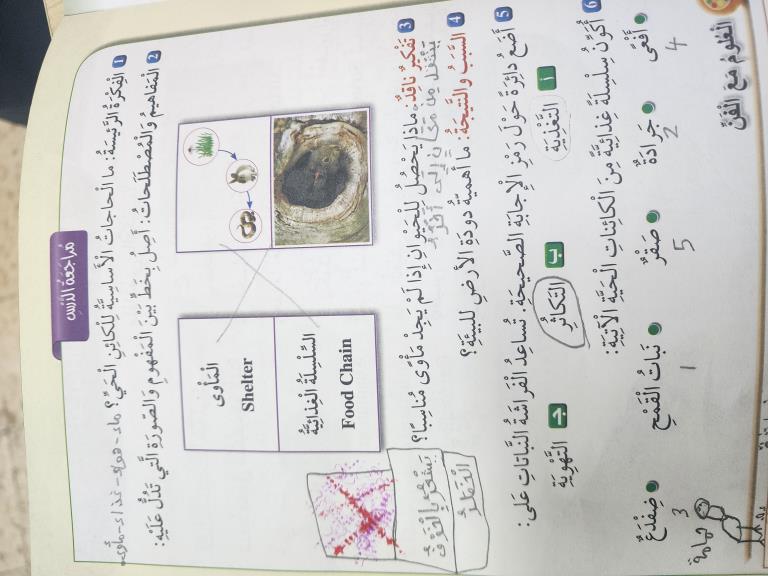 مراجعة الدرس
1 الْفِكْرَةُ الرَّئِيسَةُ: ما الْحاجاتُ الْأَساسِيَّةُ لِلْكائِنِ الْحَيِّ؟ ماء - هواء - غذاء - مأوى
2 الْمَفاهيمُ وَالْمُصْطَلَحاتُ: أَصِلُ بِخَطٍّ بَيْنَ الْمَفْهومِ وَالصّورَةِ الَّتي تَدُلُّ عَلَيْهِ:
الْمَأْوى
Shelter
السِّلْسِلَةُ الْغِذائِيَّةُ
Food Chain
3 تَفْكيرٌ ناقِدٌ: ماذا يَحْصُلُ لِلْحَيَوانِ إِذا لَمْ يَجِدْ مَأْوًى مُناسِبًا؟
ينتقل من مكان إلى آخر
يشعر بالخوف
الخطر
4 السَّبَبُ وَالنَّتيجَةُ: ما أَهَمِّيَّةُ دودَةِ الْأَرْضِ لِلْبيئَةِ؟
5 أَضَعُ دائِرَةً حَوْلَ رَمْزِ الْإِجابَةِ الصَّحيحَةِ. تُساعِدُ الْفَراشَةُ النَّباتاتِ عَلى:
أ التَّغْذِيَةِ ب التَّكاثُرِ جـ التَّهْوِيَةِ
6 أُكَوِّنُ سِلْسِلَةً غِذائِيَّةً مِنَ الْكائِناتِ الْحَيَّةِ الْآتِيَةِ:
أَفْعى جَرادَةٌ صَقْرٌ نَباتُ الْقَمْحِ ضِفْدَعٌ
4 2 5 1 3
الْعُلومُ مَعَ الْفَنِّ